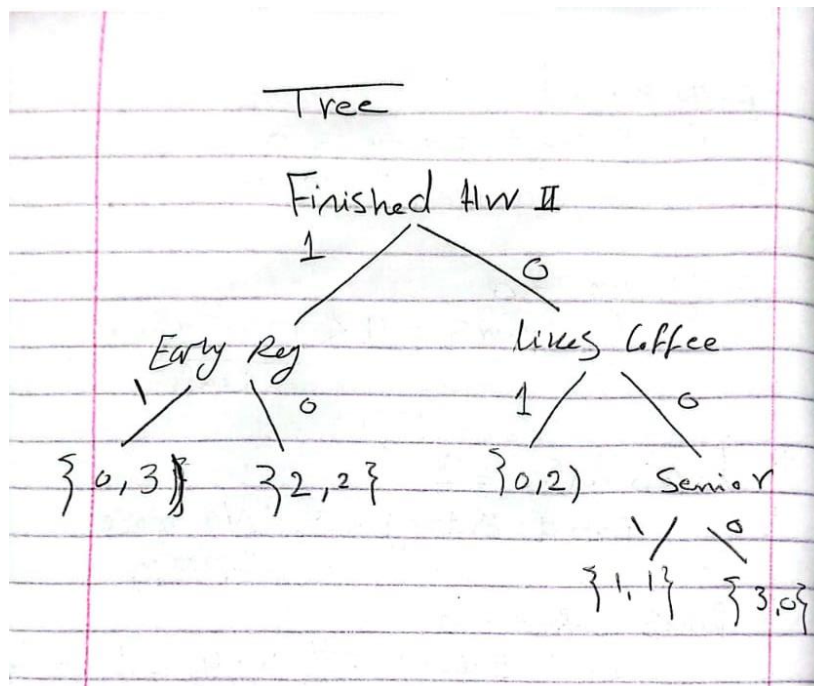 Tree
Finished HW II
1 0
Early Reg Likes Coffee
1 0 1 0
{0,3} {2,2} {0,2) Senior
1 0
{1,1} {3,0}